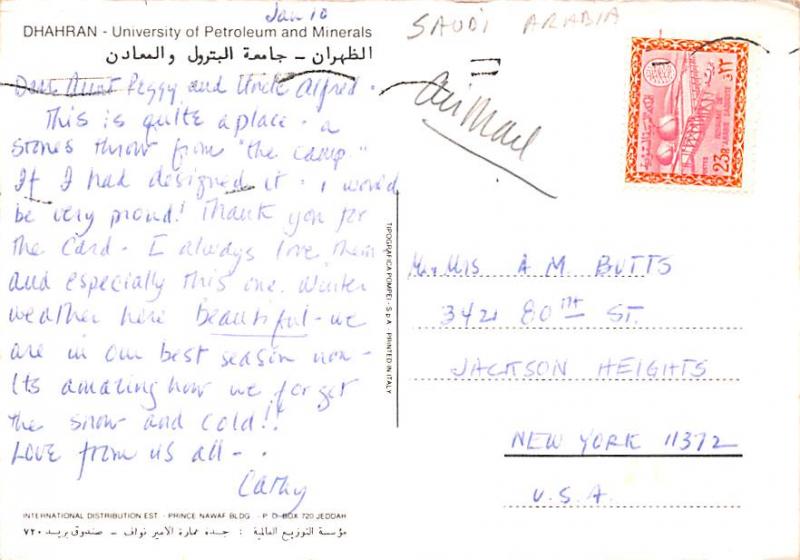 Jan 10
DHAHRAN - University of Petroleum and Minerals
الظهران - جامعة البترول والمعادن
Dear Aunt Peggy and Uncle Alfred.
This is quite a place - a
stones throw from "the camp."
If I had designed it - I would
be very proud! Thank you for
the card - I always love them
and especially this one. Winter
weather here beautiful - we
are in our best season now -
Its amazing how we forget
the snow and cold!!
Love from us all - -
Cathy
INTERNATIONAL DISTRIBUTION EST. - PRINCE NAWAF BLDG. - P. O. BOX 720 JEDDAH
مؤسسة التوزيع العالمية : جدة عمارة الامير نواف - صندوق بريد ٧٢٠
TIPOGRAFICA POMPEI - S.p.A. - PRINTED IN ITALY
SAUDI ARABIA
Air Mail
23P
Mr & Mrs A. M. BUTTS
3421 80TH ST.
JACKSON HEIGHTS
NEW YORK 11372
U.S.A.